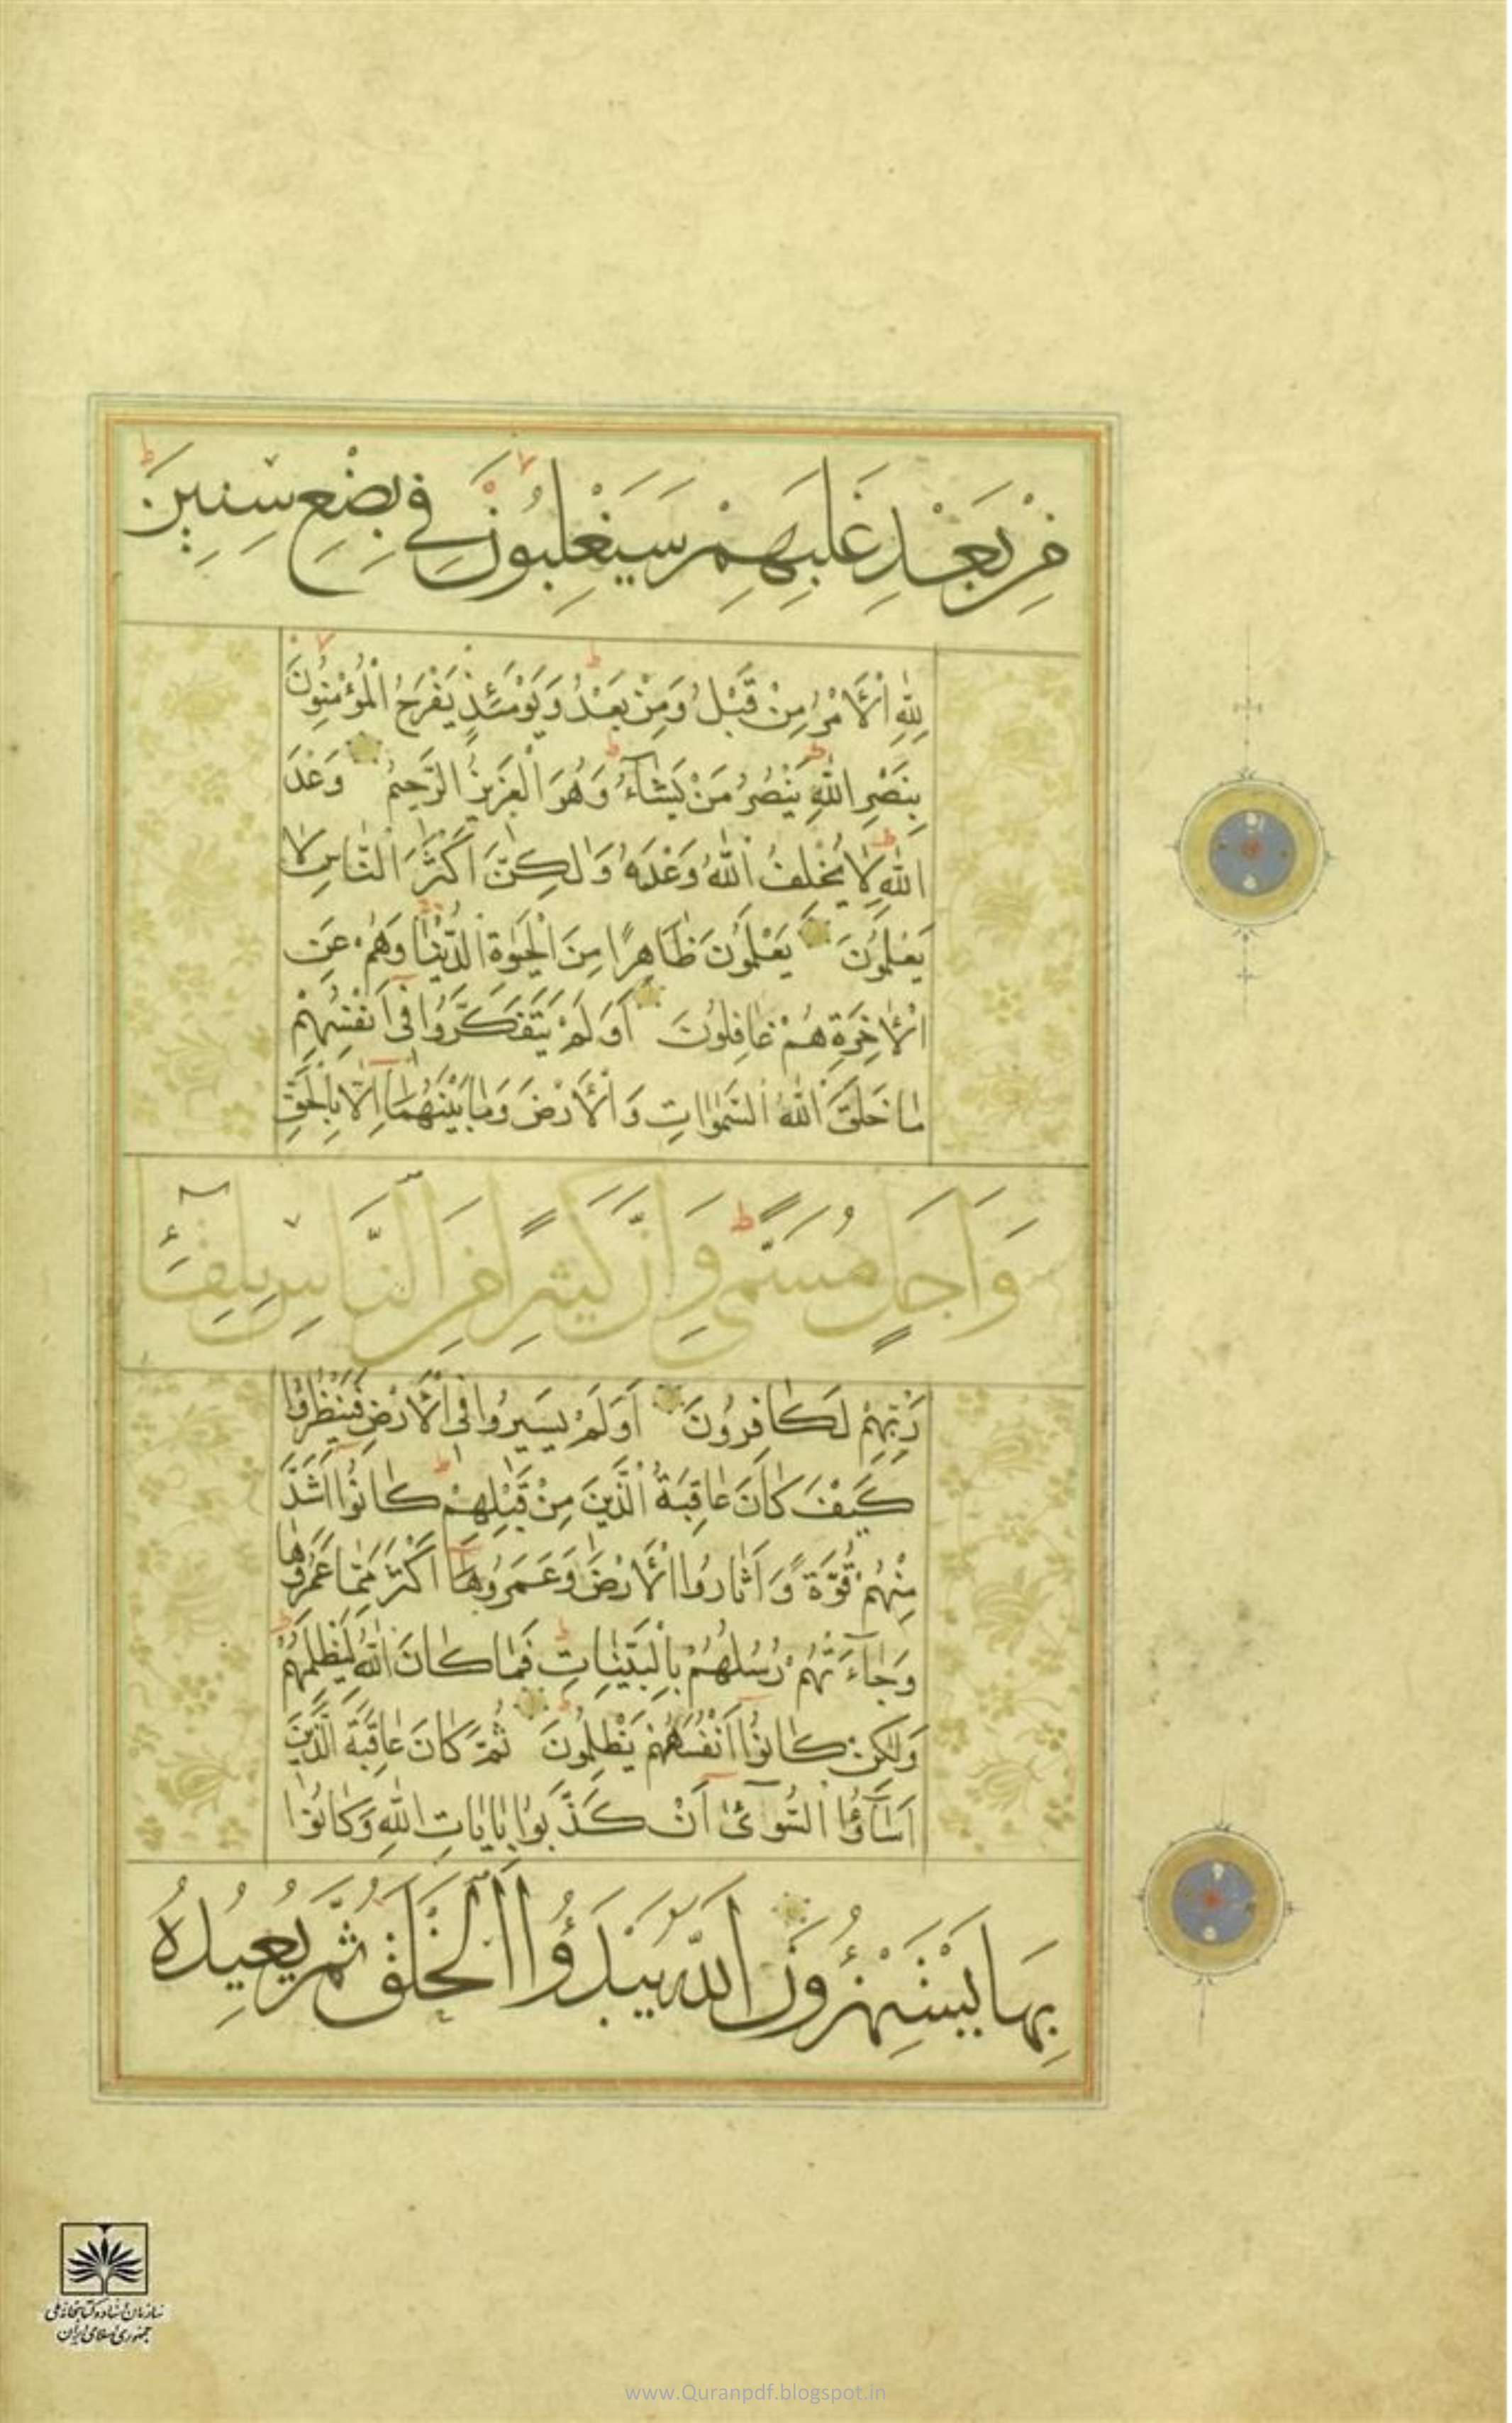 مِنْ بَعْدِ غَلَبِهِمْ سَيَغْلِبُونَ فِي بِضْعِ سِنِينَ
لِلّٰهِ الْأَمْرُ مِنْ قَبْلُ وَمِنْ بَعْدُ وَيَوْمَئِذٍ يَفْرَحُ الْمُؤْمِنُونَ
بِنَصْرِ اللّٰهِ يَنْصُرُ مَنْ يَشَآءُ وَهُوَ الْعَزِيزُ الرَّحِيمُ وَعْدَ
اللّٰهِ لَا يُخْلِفُ اللّٰهُ وَعْدَهُ وَلٰكِنَّ أَكْثَرَ النَّاسِ لَا
يَعْلَمُونَ يَعْلَمُونَ ظَاهِرًا مِنَ الْحَيٰوةِ الدُّنْيَا وَهُمْ عَنِ
الْاٰخِرَةِ هُمْ غَافِلُونَ أَوَلَمْ يَتَفَكَّرُوا فِي أَنْفُسِهِمْ
مَا خَلَقَ اللّٰهُ السَّمٰوَاتِ وَالْأَرْضَ وَمَا بَيْنَهُمَا إِلَّا بِالْحَقِّ
وَاَجَلٍ مُسَمًّى وَاِنَّ كَثِيرًا مِنَ النَّاسِ بِلِقَآئِ
رَبِّهِمْ لَكَافِرُونَ أَوَلَمْ يَسِيرُوا فِي الْأَرْضِ فَيَنْظُرُوا
كَيْفَ كَانَ عَاقِبَةُ الَّذِينَ مِنْ قَبْلِهِمْ كَانُوا اَشَدَّ
مِنْهُمْ قُوَّةً وَاَثَارُوا الْأَرْضَ وَعَمَرُوهَا اَكْثَرَ مِمَّا عَمَرُوهَا
وَجَآءَتْهُمْ رُسُلُهُمْ بِالْبَيِّنَاتِ فَمَا كَانَ اللّٰهُ لِيَظْلِمَهُمْ
وَلٰكِنْ كَانُوا اَنْفُسَهُمْ يَظْلِمُونَ ثُمَّ كَانَ عَاقِبَةَ الَّذِينَ
اَسَآؤُا السُّوآىٰٔ اَنْ كَذَّبُوا بِاٰيَاتِ اللّٰهِ وَكَانُوا
بِهَا يَسْتَهْزِؤُنَ اَللّٰهُ يَبْدَؤُا الْخَلْقَ ثُمَّ يُعِيدُهُ
سازمان اسناد و کتابخانه ملی
جمهوری اسلامی ایران
www.Quranpdf.blogspot.in